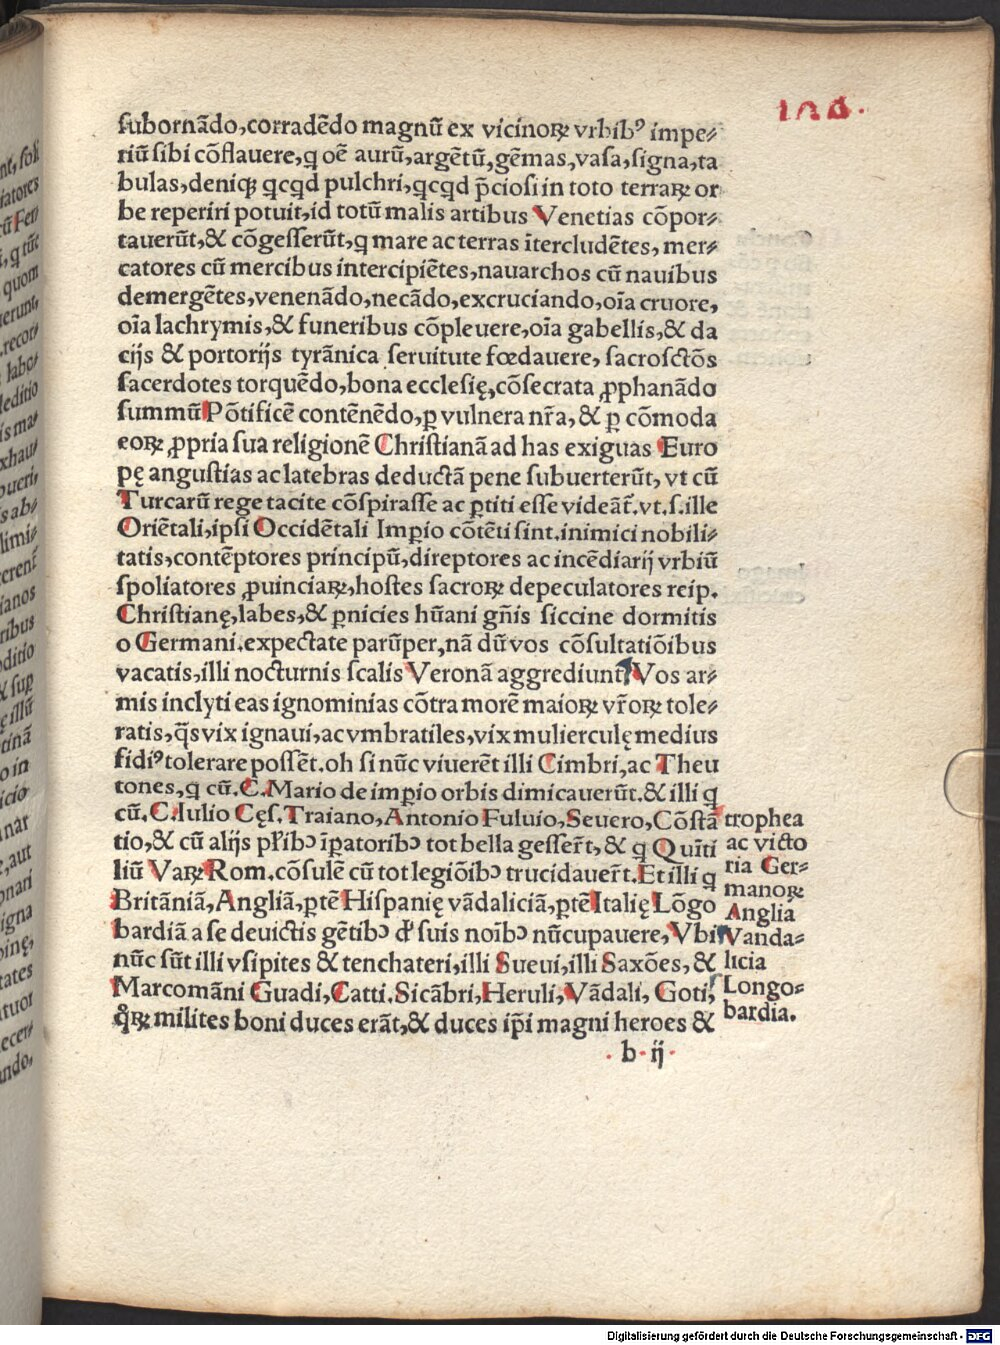 126.
subornādo,corradēdo magnū ex vicinoꝝ vrbibꝰ impe⸗
riū sibi cōflauere,q oē aurū,argētū,gēmas,vasa,signa,ta
bulas,deniqꝫ qcqd pulchri,qcqd p̄ciosi in toto terraꝝ or
be reperiri potuit,id totū malis artibus Venetias cōpor⸗
tauerūt,& cōgesserūt,q mare ac terras ītercludētes, mer⸗
catores cū mercibus intercipiētes,nauarchos cū nauibus
demergētes,venenādo,necādo,excruciando,oīa cruore,
oīa lachrymis,& funeribus cōpleuere,oīa gabellis,& da
cijs & portorijs tyrānica seruitute fœdauere, sacrosctōs
sacerdotes torquēdo,bona ecclesię,cōsecrata ꝓphanādo
summū Pōtificē contēnēdo,ꝑ vulnera nr̄a,& ꝑ cōmoda
eoꝝ ꝓpria sua religionē Christianā ad has exiguas Euro
pę angustias ac latebras deductā pene subuerterūt, vt cū
Turcarū rege tacite cōspirasse ac ꝑtiti esse videāt̄.vt.s.ille
Oriētali,ipsi Occidētali Imꝑio cōtēti sint.inimici nobili⸗
tatis,contēptores principū,direptores ac incēdiarij vrbiū
spoliatores ꝓuinciaꝝ,hostes sacroꝝ depeculatores reip.
Christianę,labes,& ꝑnicies hūani gn̄is siccine dormitis
o Germani.expectate parūper,nā dū vos cōsultatiōibus
vacatis,illi nocturnis scalis Veronā aggrediunt̄ Vos ar⸗
mis inclyti eas ignominias cōtra morē maioꝝ vr̄oꝝ tole⸗
ratis,q̄s vix ignaui,ac vmbratiles,vix mulierculę medius
fidiꝰ tolerare possēt.oh si nūc viuerēt illi Cimbri,ac Theu
tones,q cū.C.Mario de imꝑio orbis dimicauerūt.& illi q
cū.C.Iulio Cęs.Traiano,Antonio Fuluio,Seuero,Cōstā
tio,& cū alijs pl̄ibꝰ īꝑatoribꝰ tot bella gesser̄t,& q Quīti
liū Vaꝝ Rom.cōsulē cū tot legiōibꝰ trucidauer̄t.Et illi q
Britāniā,Angliā,ꝑtē Hispanię vādaliciā,ꝑtē Italię Lōgo
bardiā a se deuictis gētibꝰ & suis noībꝰ nūcupauere,Vbi
nūc sūt illi vsipites & tenchateri,illi Sueui,illi Saxōes,&
Marcomāni Guadi,Catti.Sicābri,Heruli,Vādali, Goti,
q̄ꝝ milites boni duces erāt,& duces ip̄i magni heroes &
b ij
trophea
ac victo
ria Ger⸗
manoꝝ
Anglia
Vanda⸗
licia
Longo⸗
bardia.
Digitalisierung gefördert durch die Deutsche Forschungsgemeinschaft - DFG